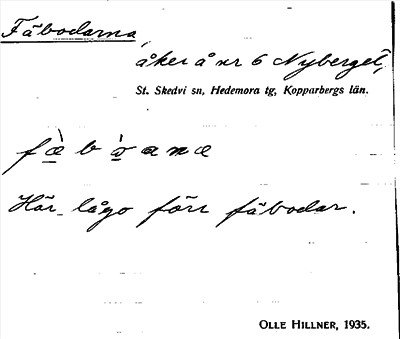 Fäbodarna,
åker å nr 6 Nyberget,
St. Skedvi sn, Hedemora tg, Kopparbergs län.
Här lågo förr fäbodar.
OLLE HILLNER, 1935.